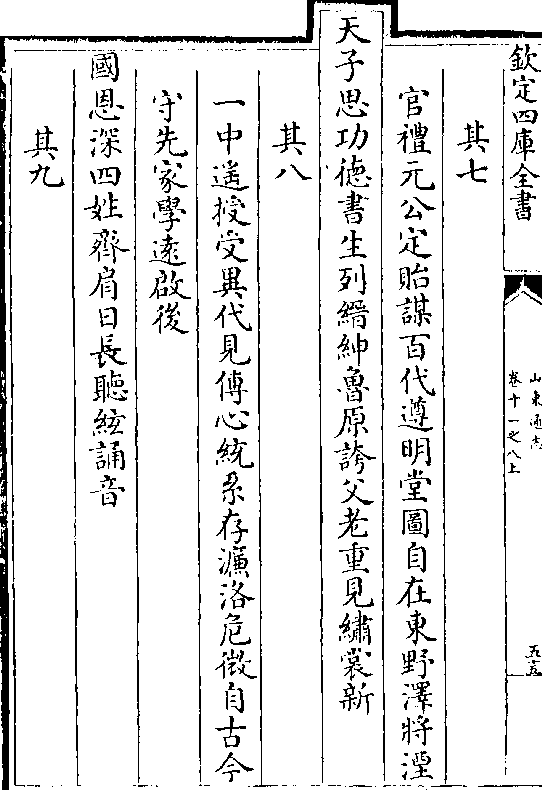 欽定四庫全書
山東通志
卷十一之八上
五五
其七
官禮元公定貽謀百代遵明堂圖自在東野澤將湮
天子思功德書生列縉紳魯原誇父老重見繡裳新
其八
一中遙授受異代見傳心統系存濂洛危微自古今
守先家學遠啟後
國恩深四姓齊肩日長聽絃誦音
其九